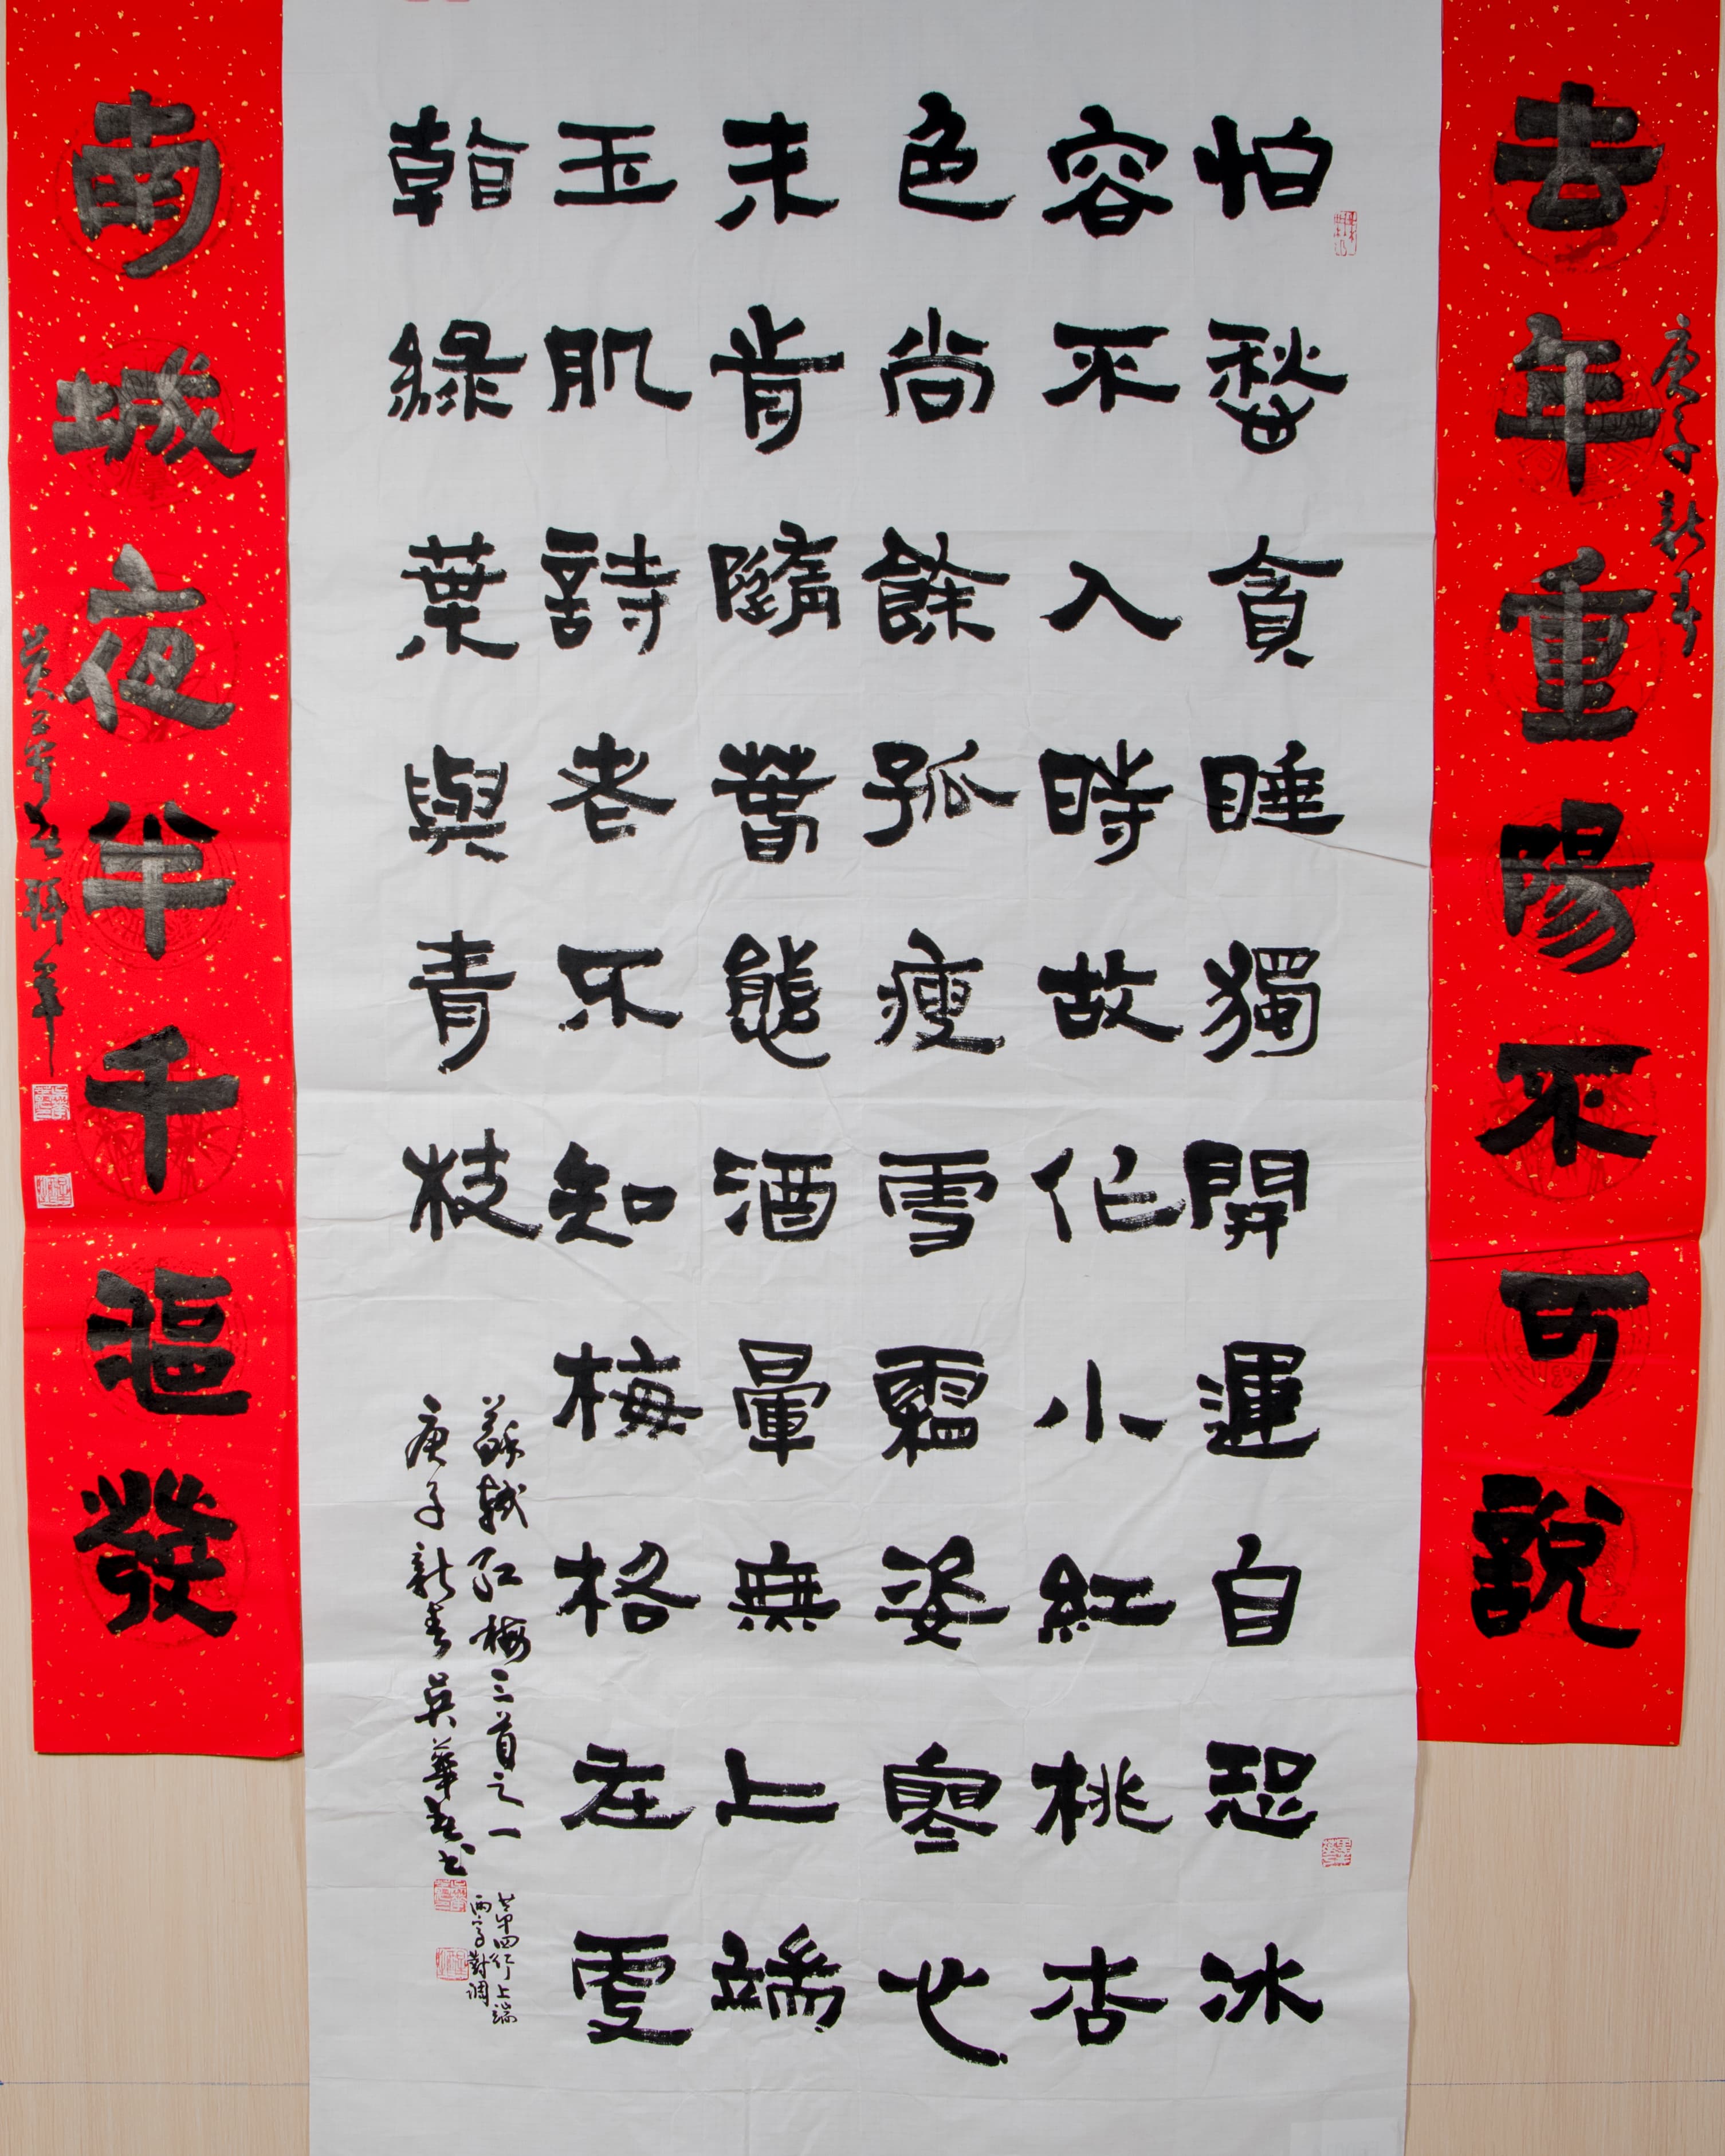 去年重陽不可說
庚子新春
怕愁貪睡獨開遲自恐冰
容不入時故作小紅桃杏
色尚餘孤瘦雪霜姿寒心
未肯隨春態酒暈無上端
玉肌詩老不知梅格在更
看綠葉與青枝
蘇軾紅梅三首之一
庚子新春吳華書
第四行上端
兩字對調
南城夜半千漚發